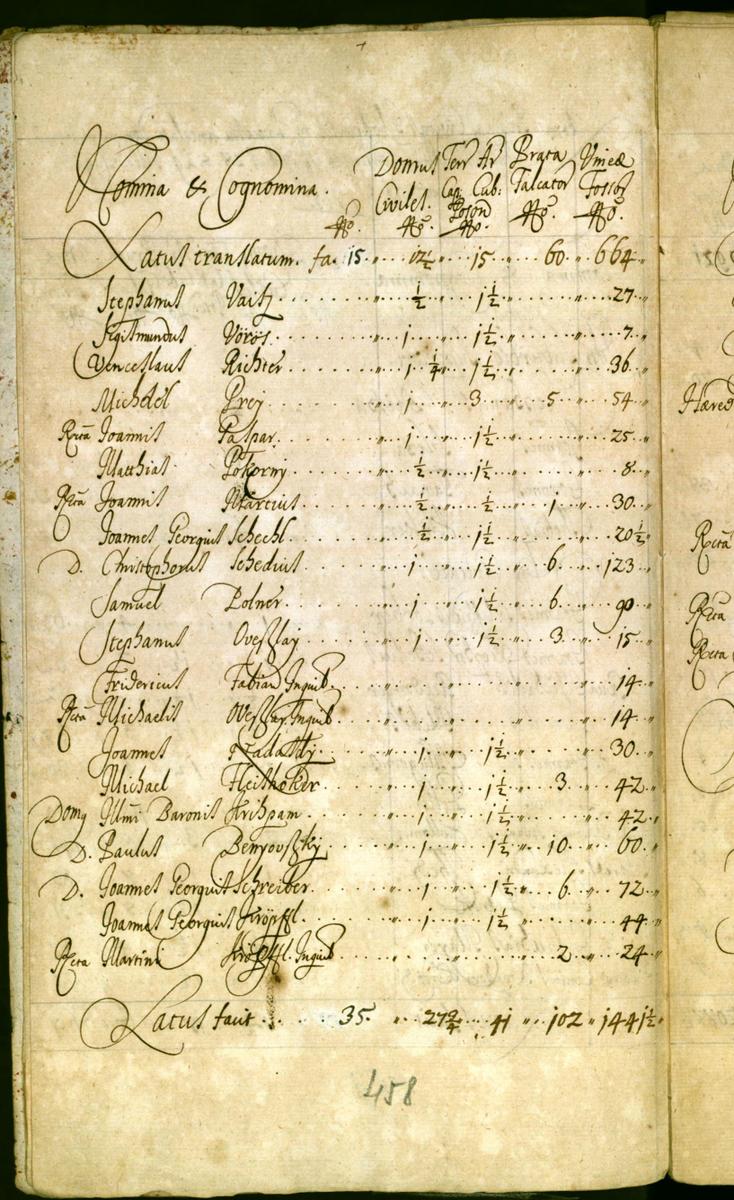 Nomina & Cognomina. Nrō. Domus Civiles. Nrō. Terr Ar Cap: Cub: Poson Nrō. Prata Falcator Nrō. Vineæ Fossor Nrō.
Latus translatum. fa. 15 12½ 15 60 664
Stephanus Vaitz ½ 1½ 27
Sigismundus Vörös 1 1½ 7
Venceslaus Richter 1¼ 1½ 36
Michael Prey 1 3 5 54
Rcta Joannis Paspar 1 1½ 25
Matthias Pokorny ½ 1½ 8
Rcta Joannis Martius ½ ½ 1 30
Joannes Georgius Schechl ½ 1½ 20½
D. Christophorus Schedius 1 1½ 6 123
Samuel Polner 1 1½ 6 90
Stephanus Oveßlaÿ 1 1½ 3 15
Fridericus Fabian Inquil. 14
Rcta Michaelis Oveßlay Inquil. 14
Joannes 1 1½ 30
Michael Fleishaker 1 1½ 3 42
Domy Illmi Baronis Krißpam 1 1½ 42
D. Paulus Benyovßky 1 1½ 10 60
D. Joannes Georgius Schreiber 1 1½ 6 72
Joannes Georgius Kröpffl 1 1½ 44
Rcta Martini Kröpffl Inquil. 2 24
Latus facit 35 27 2/4 41 102 1441½
458
Hæred
Rcta
Rcta
Rcta